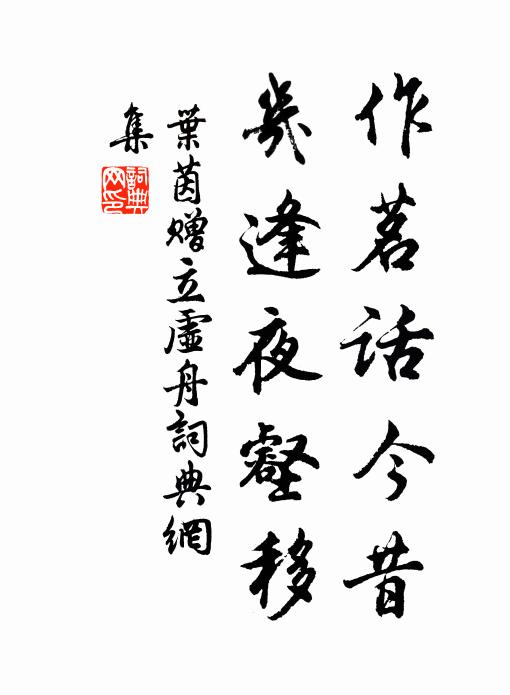 作茗話今昔
幾逢夜壑移
葉茵贈立虛舟詞典網
集
詞典网印